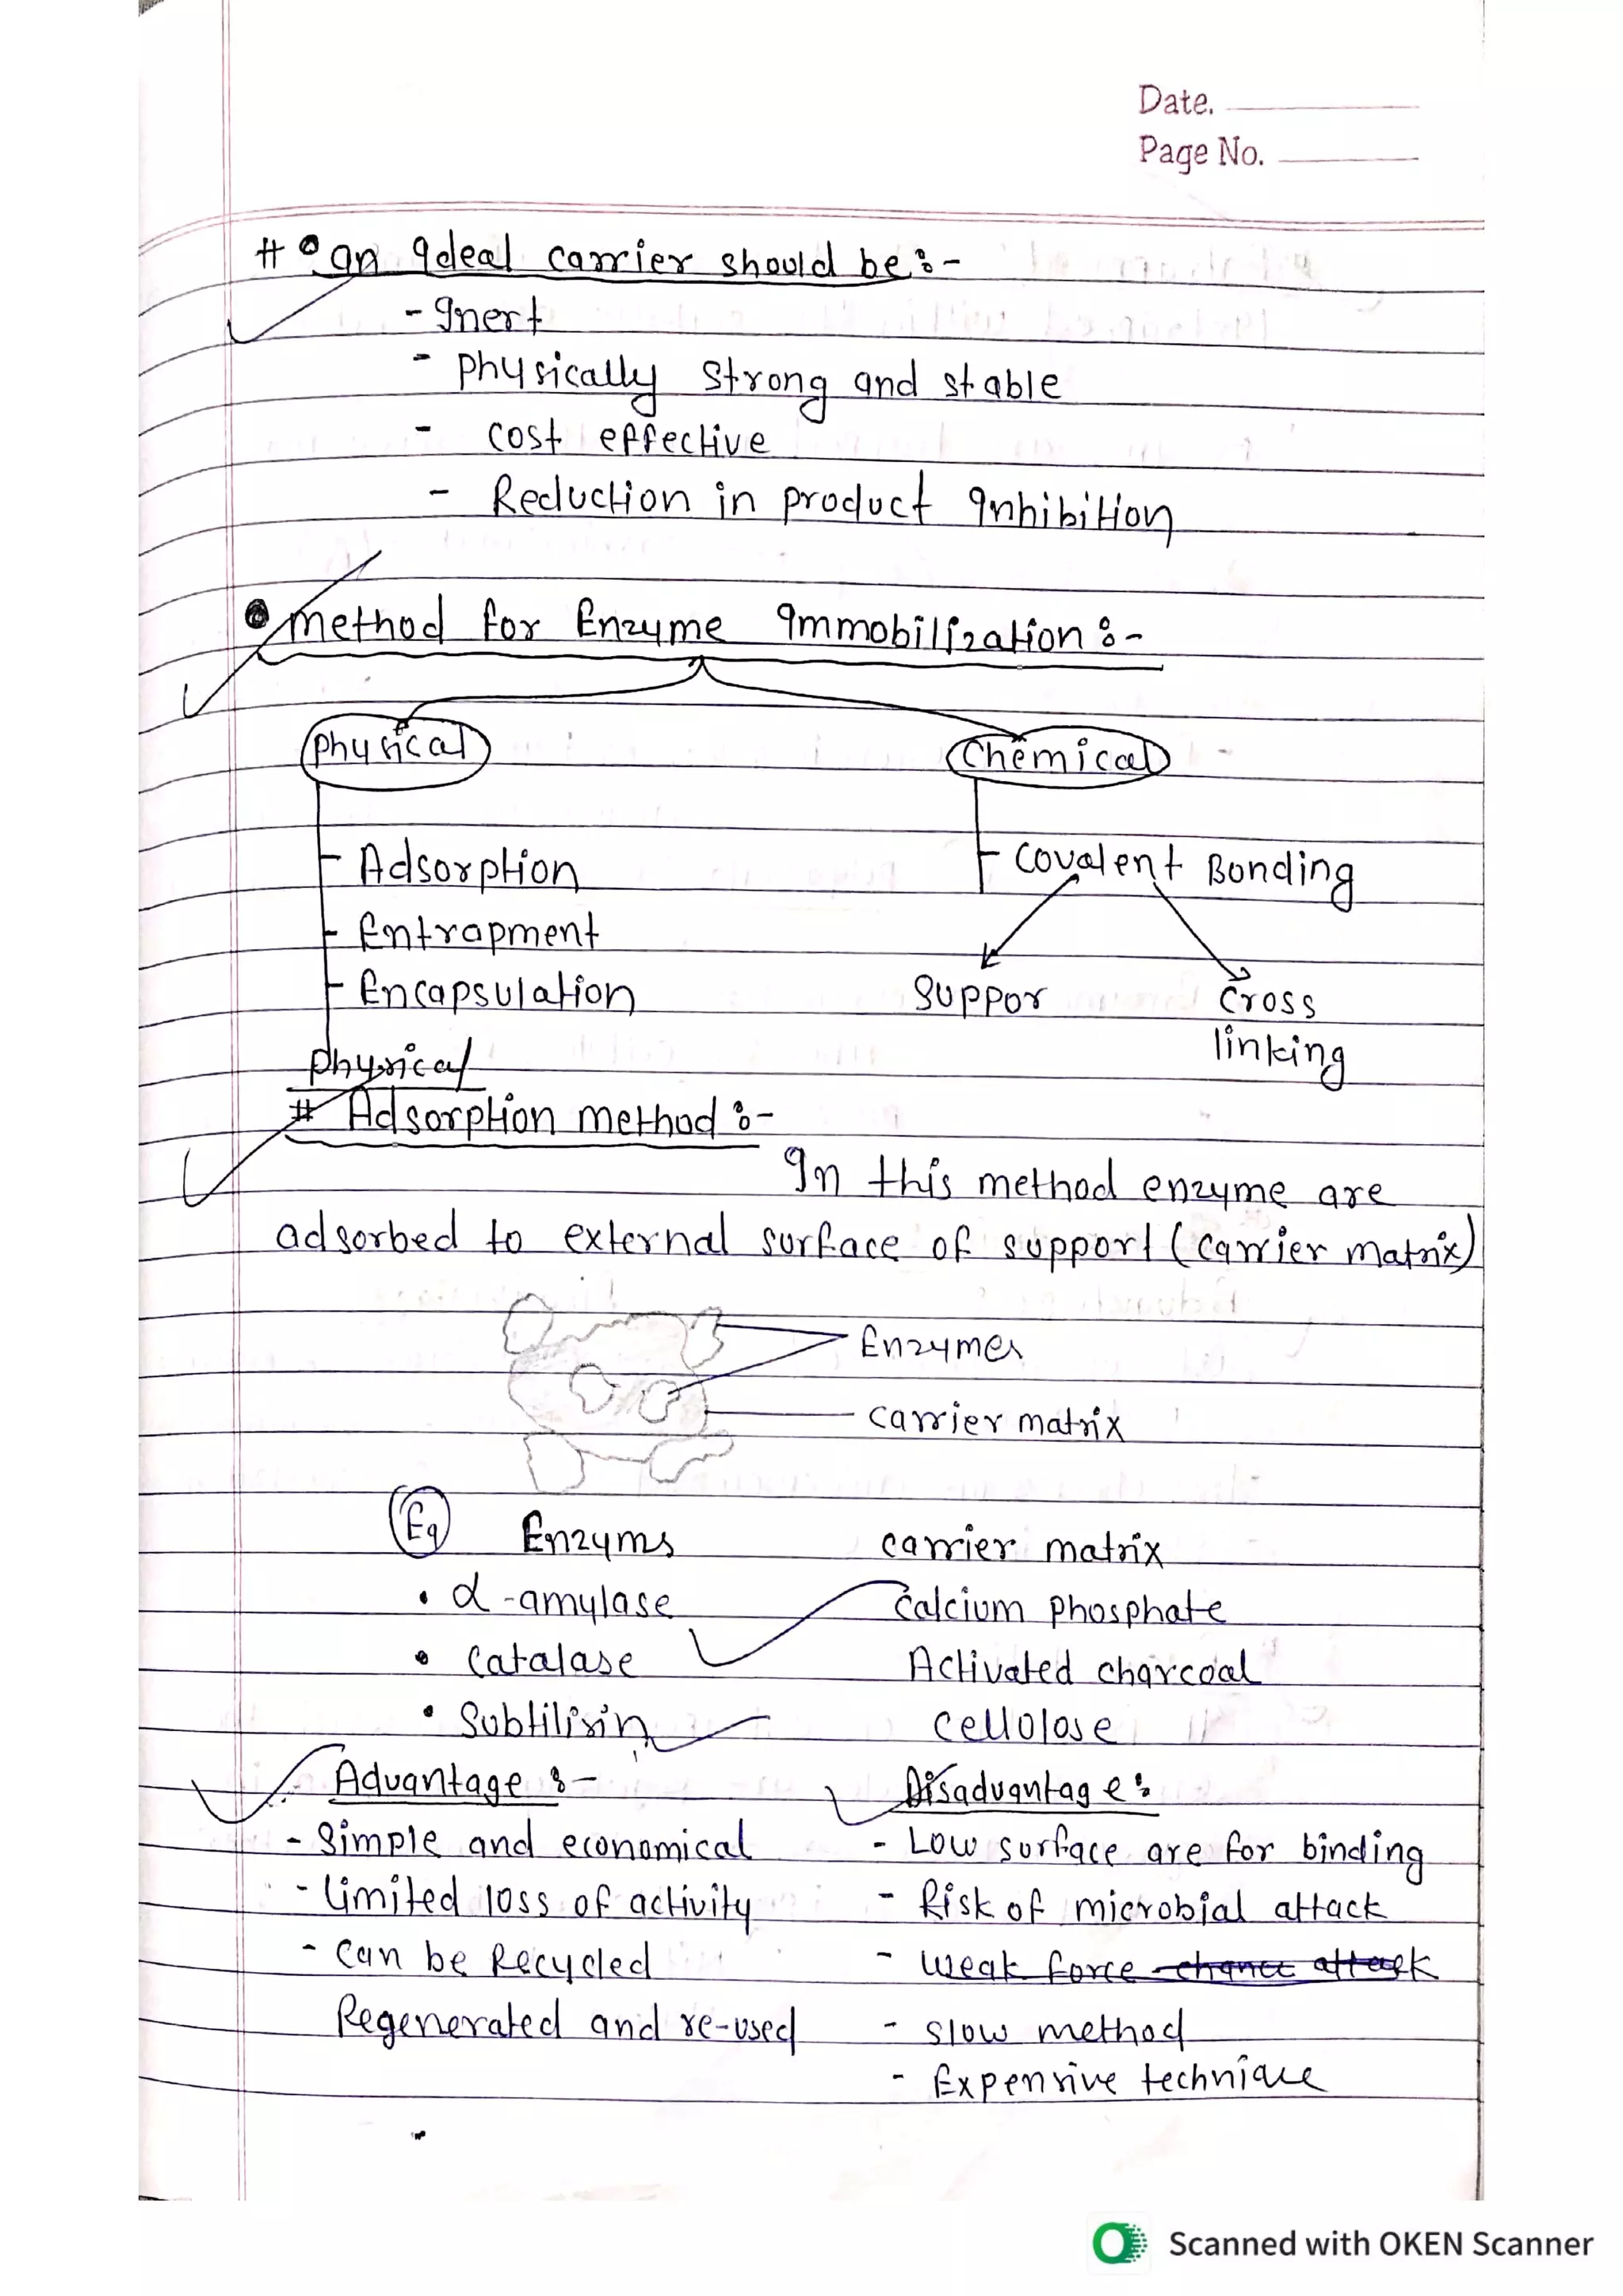 Date.
Page No.
# • An Ideal carrier should be :-
- Inert
- Physically strong and stable
- cost effective
- Reduction in product Inhibition
• Method for Enzyme Immobilization :-
Physical Chemical
- Adsorption - Covalent Bonding
- Entrapment
- Encapsulation Suppor Cross
linking
Physical
# Adsorption method :-
In this method enzyme are
adsorbed to external surface of support (carrier matrix)
Enzymes
carrier matrix
Eg Enzyms carrier matrix
• α-amylase Calcium Phosphate
• Catalase Activated charcoal
• Subtilisin Cellolose
Advantage :- Disadvantage :
- Simple and economical - Low surface are for binding
- Limited loss of activity - Risk of microbial attack
- Can be Recycled - weak force
Regenerated and re-used - slow method
- Expensive technique
Scanned with OKEN Scanner